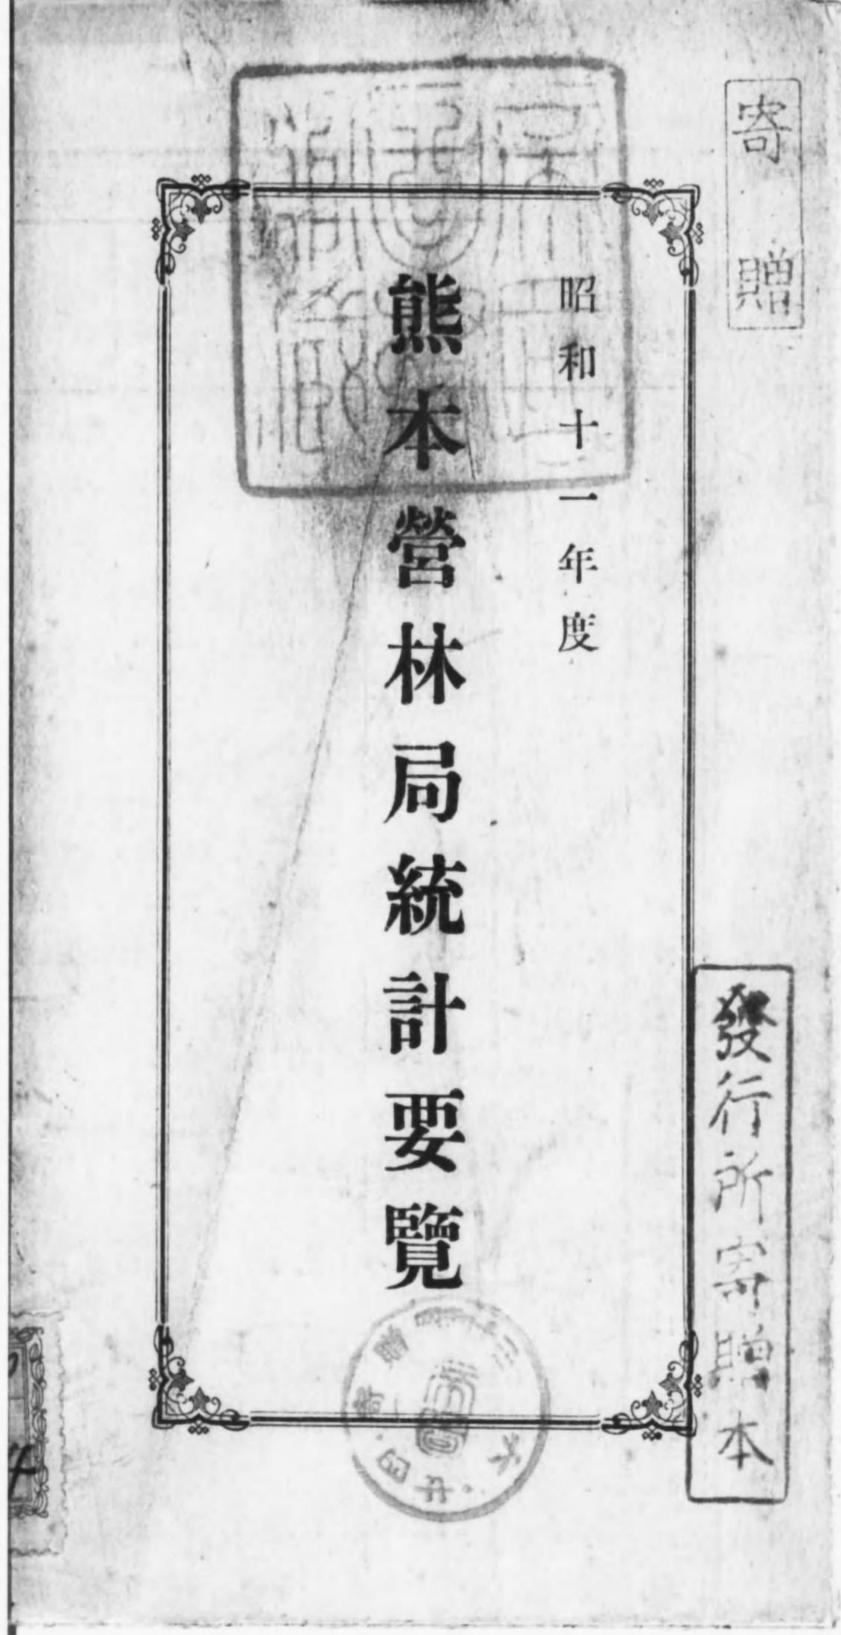 寄贈
昭和十一年度
熊本營林局統計要覽
發行所寄贈本